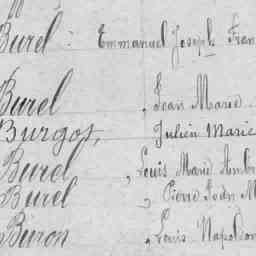 Burel : Emmanuel Joseph Fran
Burel , Jean Marie
Burgot, Julien Marie
Burel , Louis Marie Amb
Burel , Pierre Jean M
Buron , Louis Napoléon